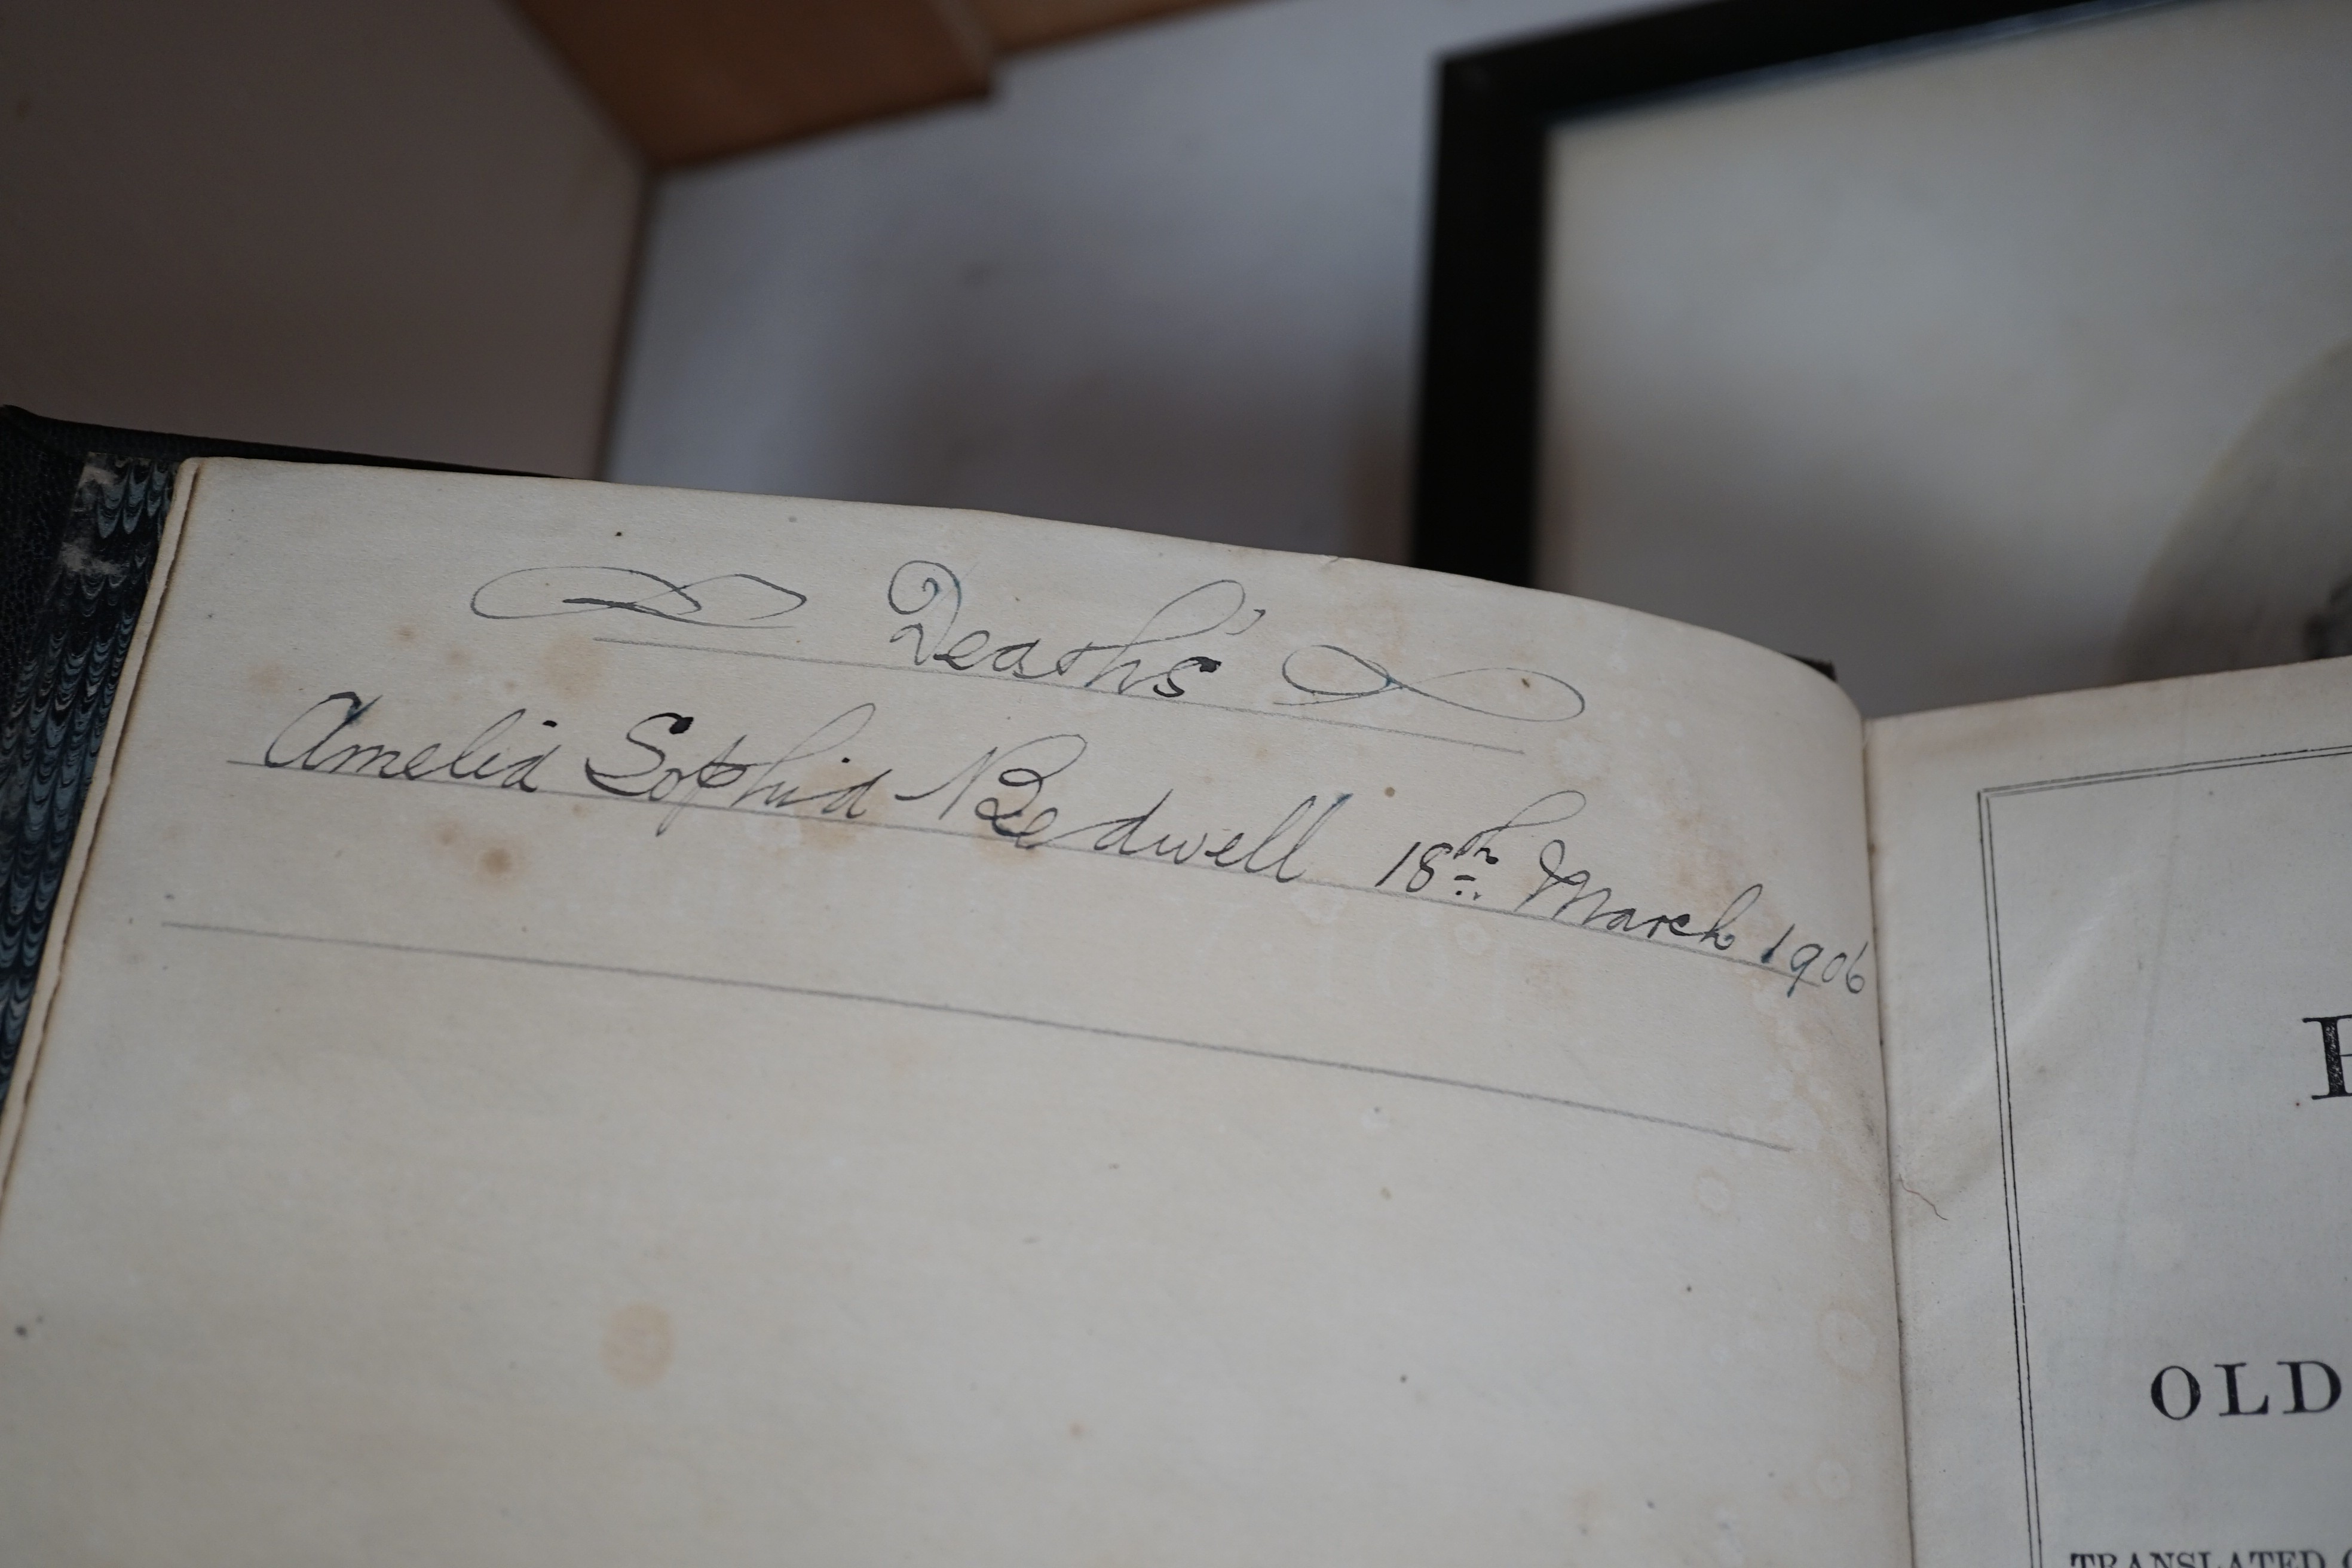 Death's
Amelia Sophia Bedwell 18th March 1906
OLD
TRANSLATED